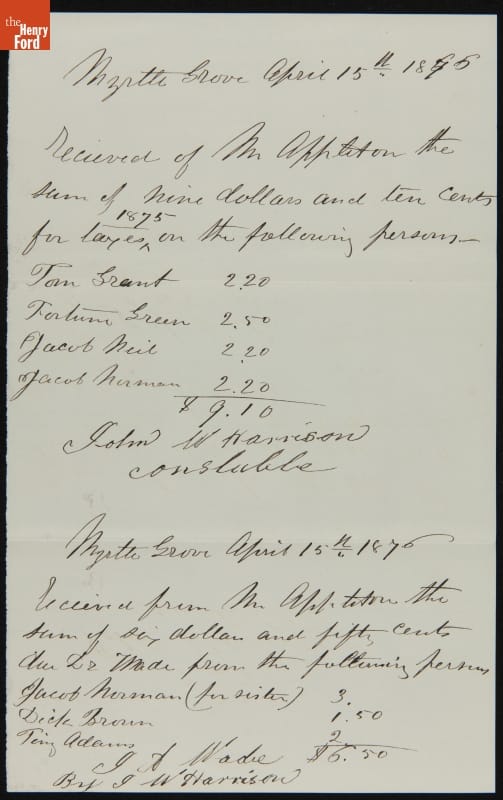 the
Henry
Ford
Myrtle Grove April 15th 1876
Recieved of Mr Appleton the
sum of nine dollars and ten cents
1875
for taxes, on the following persons—
Tom Grant 2.20
Fortune Green 2.50
Jacob Neil 2.20
Jacob Norman 2.20
$ 9.10
John W Harrison
constable
Myrtle Grove April 15th 1876
Recieved from Mr Appleton the
sum of six dollars and fifty cents
due Dr Wade from the following persons
Jacob Norman (for sister) 3.
Dick Brown 1.50
Tim Adams 2
$6.50
J A Wade
By J W Harrison